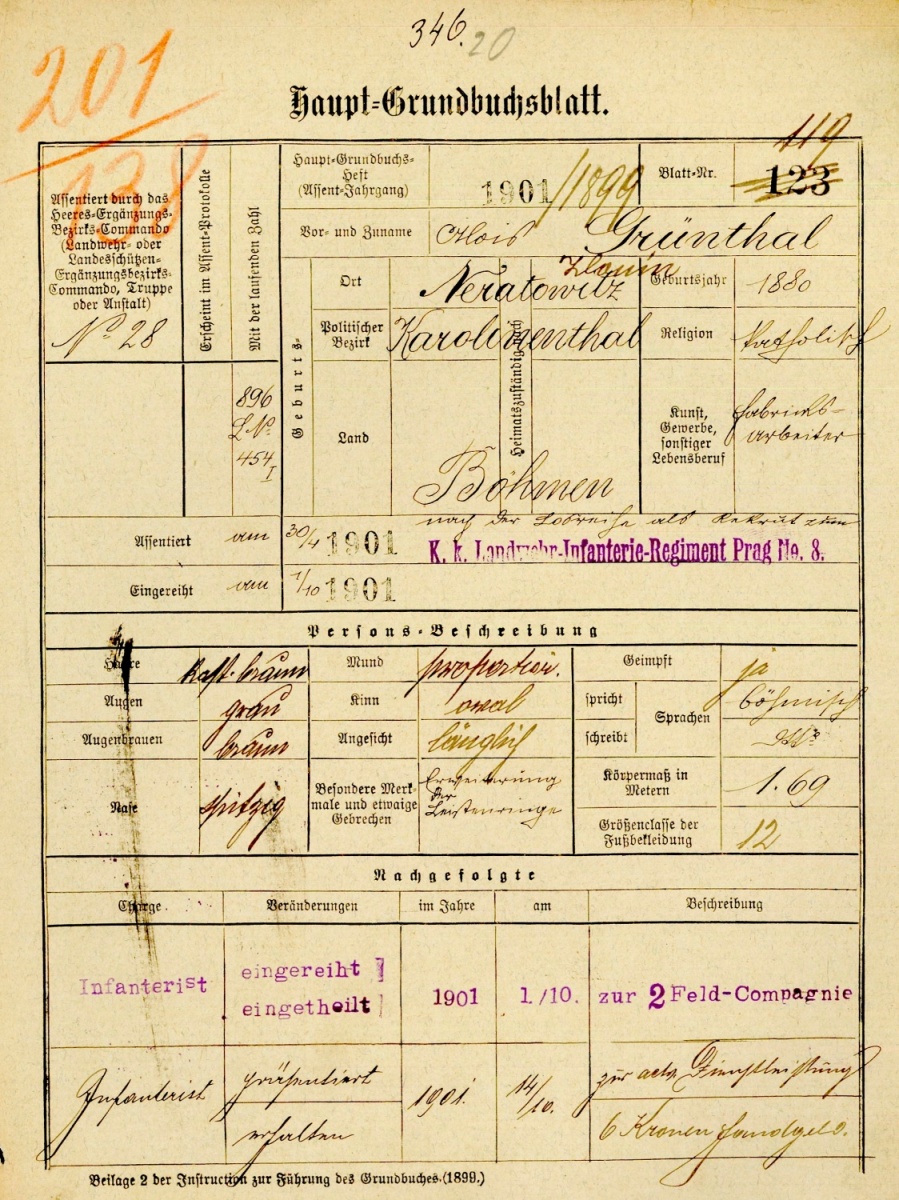 346. 20
201
138
Haupt-Grundbuchsblatt.
119
Assentiert durch das
Heeres-Ergänzungs-
Bezirks-Commando
(Landwehr- oder
Landesschützen-
Ergänzungsbezirks-
Commando, Truppe
oder Anstalt)
No 28
Erscheint im Assent-Protokolle
Mit der laufenden Zahl
896
L No
454
I
Haupt-Grundbuchs-
Heft
(Assent-Jahrgang)
1901/1899
Blatt-Nr.
123
Vor- und Zuname
Alois Grünthal
Geburts-
Ort
Neratowitz
Politischer
Bezirk
Karolinenthal
Land
Böhmen
Heimatszuständig nach
Geburtsjahr
1880
Religion
katholisch
Kunst,
Gewerbe,
sonstiger
Lebensberuf
Fabriks-
arbeiter
Assentiert am 30/4 1901
nach der Losreihe als Rekrut zum
K. k. Landwehr-Infanterie-Regiment Prag No. 8.
Eingereiht am 1/10 1901
Persons-Beschreibung
Haare kast. braun
Mund proportion.
Geimpft ja
Augen grau
Kinn oval
spricht
Sprachen
böhmisch
Augenbrauen braun
Angesicht länglich
schreibt
Nase spitzig
Besondere Merk-
male und etwaige
Gebrechen
Erweiterung
der
Leistenringe
Körpermaß in
Metern
1.69
Größenclasse der
Fußbekleidung
12
Nachgefolgte
Charge
Veränderungen
im Jahre
am
Beschreibung
Infanterist
eingereiht
eingetheilt
1901
1./10.
zur 2 Feld-Compagnie
Infanterist
präsentiert
1901.
14/10.
zur activ. Dienstleistung
erhalten
6 Kronen Handgeld.
Beilage 2 der Instruction zur Führung des Grundbuches. (1899.)